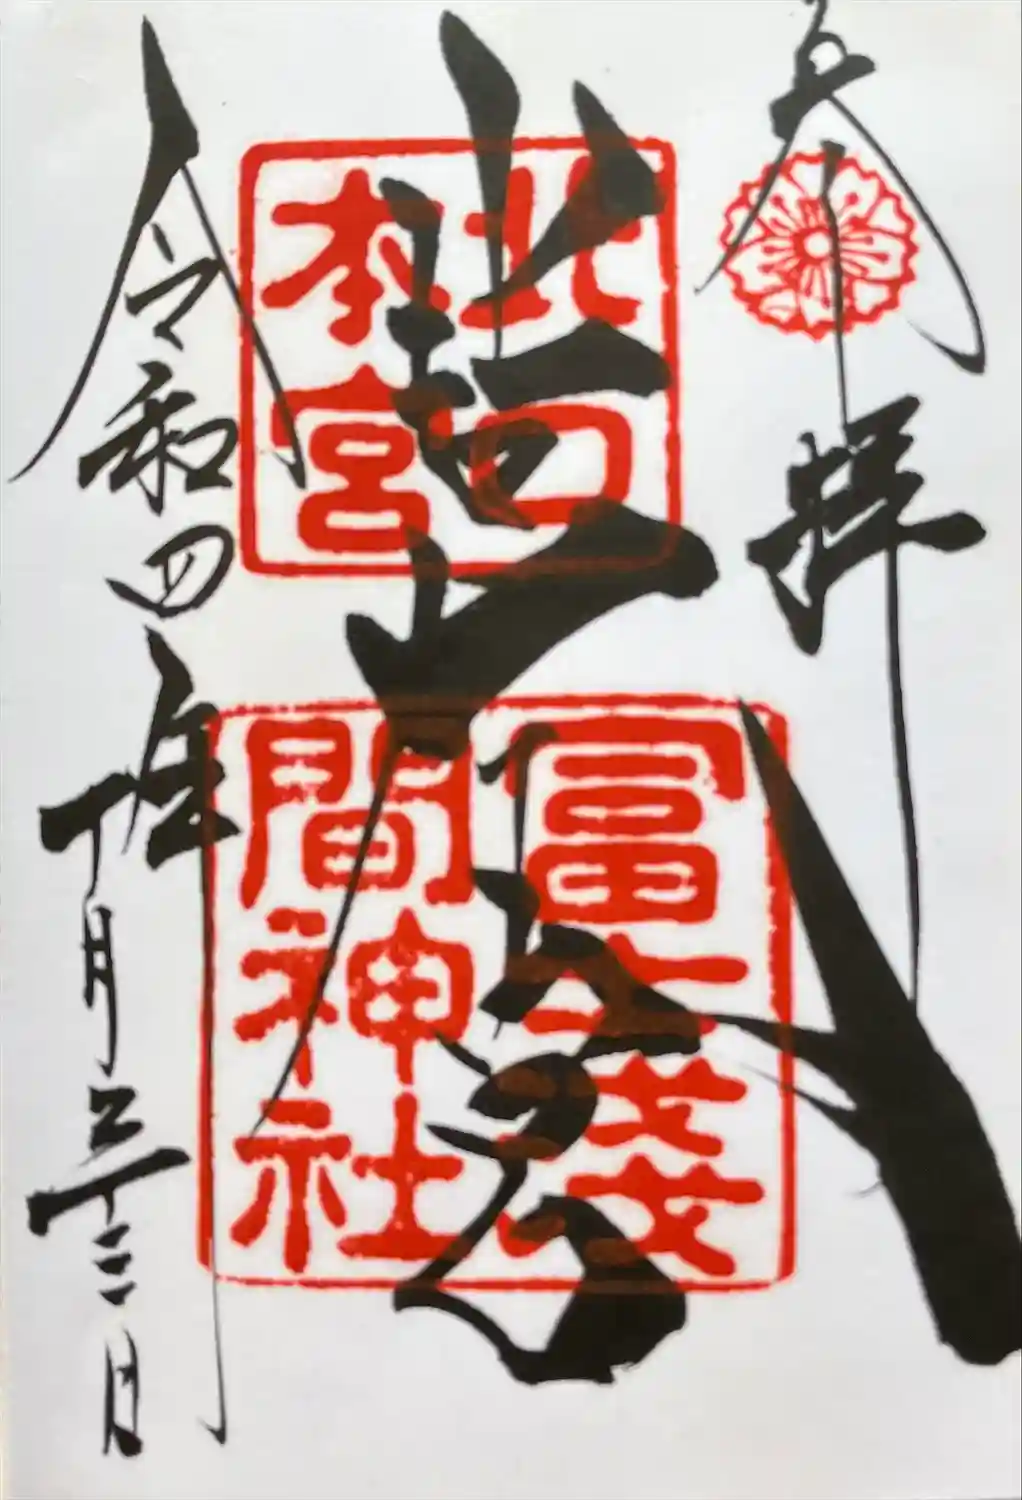 奉拝
北口
本宮
冨士淺
間神社
令和四年十月二十二日